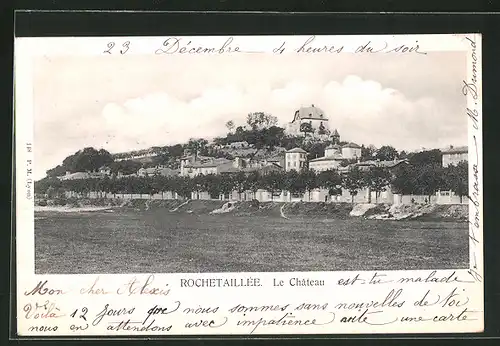 23 Décembre - 4 heures du soir
ROCHETAILLÉE. Le Château
est-tu malade
Mon cher Alexis
Voilà 12 jours que nous sommes sans nouvelles de toi
nous en attendons avec impatience une carte
M. Dumond